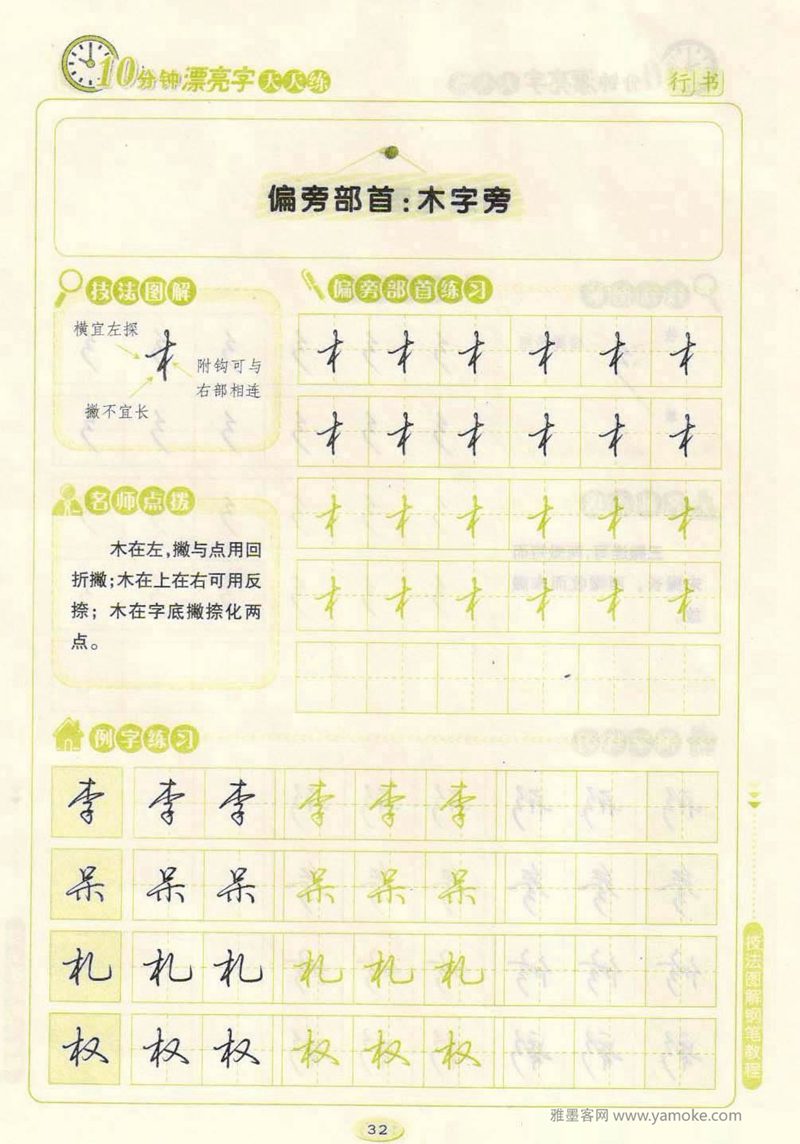 10分钟漂亮字天天练
行书
偏旁部首:木字旁
技法图解
横宜左探
附钩可与
右部相连
撇不宜长
偏旁部首练习
木 木 木 木 木 木
木 木 木 木 木 木
木 木 木 木 木 木
木 木 木 木 木 木
名师点拨
木在左,撇与点用回
折撇;木在上在右可用反
捺;木在字底撇捺化两
点。
例字练习
李 李 李 李 李 李
呆 呆 呆 呆 呆 呆
札 札 札 札 札 札
权 权 权 权 权 权
技法图解钢笔教程
32
雅墨客网 www.yamoke.com